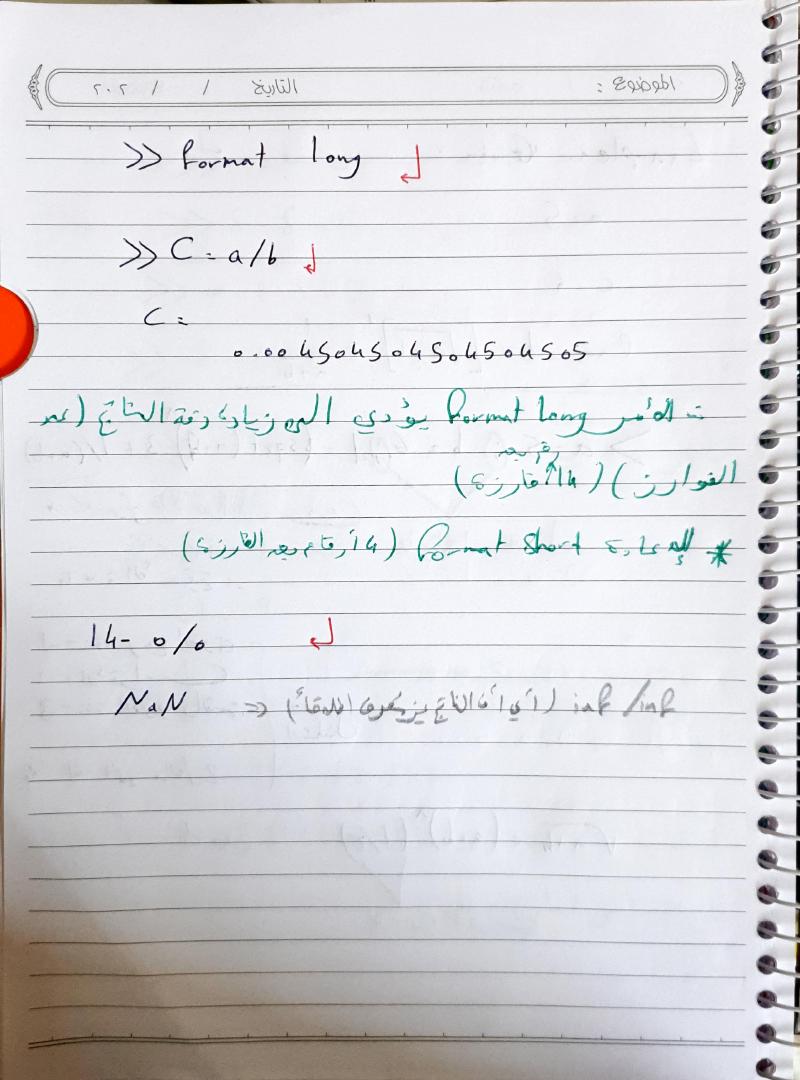 الموضوع : التاريخ / / ٢٠٢
>> format long ↲
>> C = a/b ↲
C =
0.004504504504504505
الأمر format long يؤدي الى زيادة دقة الناتج (عدد
الفوارز) (14 رقم بعد فارزة)
* لإعادة format short (4 أرقام بعد الفارزة)
14- 0/0 ↲
NaN ⇐ (أي أن الناتج غير معرف اطلاقاً) inf/inf